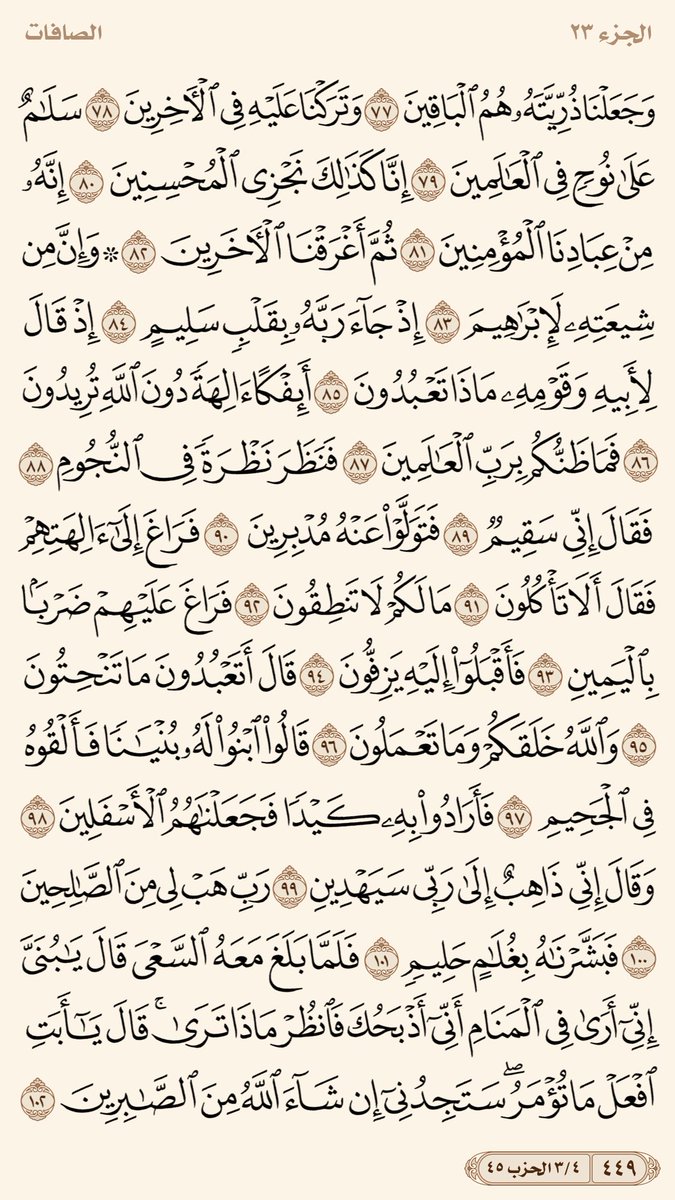 الجزء ٢٣ الصافات
وَجَعَلْنَا ذُرِّيَّتَهُۥ هُمُ ٱلْبَاقِينَ ٧٧ وَتَرَكْنَا عَلَيْهِ فِى ٱلْأَخِرِينَ ٧٨ سَلَٰمٌ
عَلَىٰ نُوحٍ فِى ٱلْعَٰلَمِينَ ٧٩ إِنَّا كَذَٰلِكَ نَجْزِى ٱلْمُحْسِنِينَ ٨٠ إِنَّهُۥ
مِنْ عِبَادِنَا ٱلْمُؤْمِنِينَ ٨١ ثُمَّ أَغْرَقْنَا ٱلْأَخَرِينَ ٨٢ ۞ وَإِنَّ مِن
شِيعَتِهِۦ لَإِبْرَٰهِيمَ ٨٣ إِذْ جَآءَ رَبَّهُۥ بِقَلْبٍ سَلِيمٍ ٨٤ إِذْ قَالَ
لِأَبِيهِ وَقَوْمِهِۦ مَاذَا تَعْبُدُونَ ٨٥ أَئِفْكًا ءَالِهَةً دُونَ ٱللَّهِ تُرِيدُونَ
٨٦ فَمَا ظَنُّكُم بِرَبِّ ٱلْعَٰلَمِينَ ٨٧ فَنَظَرَ نَظْرَةً فِى ٱلنُّجُومِ ٨٨
فَقَالَ إِنِّى سَقِيمٌ ٨٩ فَتَوَلَّوْا۟ عَنْهُ مُدْبِرِينَ ٩٠ فَرَاغَ إِلَىٰٓ ءَالِهَتِهِمْ
فَقَالَ أَلَا تَأْكُلُونَ ٩١ مَا لَكُمْ لَا تَنطِقُونَ ٩٢ فَرَاغَ عَلَيْهِمْ ضَرْبًۢا
بِٱلْيَمِينِ ٩٣ فَأَقْبَلُوٓا۟ إِلَيْهِ يَزِفُّونَ ٩٤ قَالَ أَتَعْبُدُونَ مَا تَنْحِتُونَ
٩٥ وَٱللَّهُ خَلَقَكُمْ وَمَا تَعْمَلُونَ ٩٦ قَالُوا۟ ٱبْنُوا۟ لَهُۥ بُنْيَٰنًا فَأَلْقُوهُ
فِى ٱلْجَحِيمِ ٩٧ فَأَرَادُوا۟ بِهِۦ كَيْدًا فَجَعَلْنَٰهُمُ ٱلْأَسْفَلِينَ ٩٨
وَقَالَ إِنِّى ذَاهِبٌ إِلَىٰ رَبِّى سَيَهْدِينِ ٩٩ رَبِّ هَبْ لِى مِنَ ٱلصَّٰلِحِينَ
١٠٠ فَبَشَّرْنَٰهُ بِغُلَٰمٍ حَلِيمٍ ١٠١ فَلَمَّا بَلَغَ مَعَهُ ٱلسَّعْىَ قَالَ يَٰبُنَىَّ
إِنِّىٓ أَرَىٰ فِى ٱلْمَنَامِ أَنِّىٓ أَذْبَحُكَ فَٱنظُرْ مَاذَا تَرَىٰ ۚ قَالَ يَٰٓأَبَتِ
ٱفْعَلْ مَا تُؤْمَرُ ۖ سَتَجِدُنِىٓ إِن شَآءَ ٱللَّهُ مِنَ ٱلصَّٰبِرِينَ ١٠٢
٤٤٩ ٣/٤ الحزب ٤٥